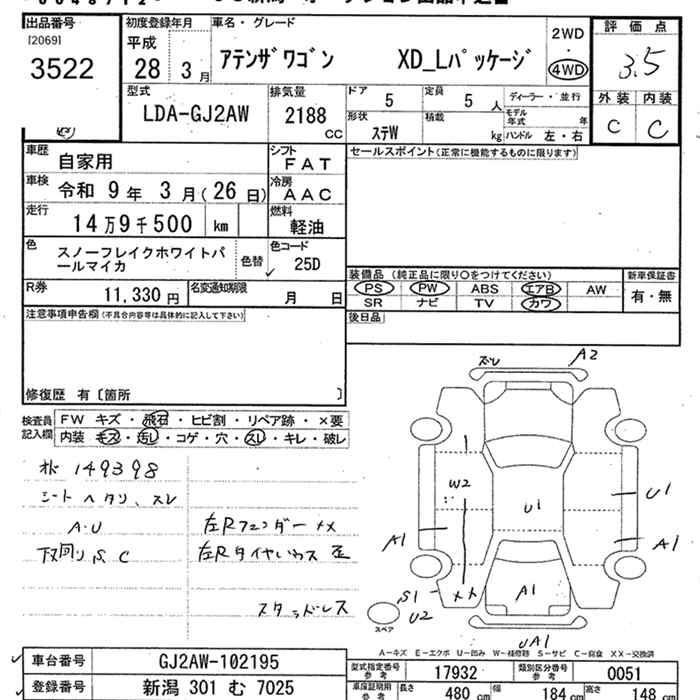 出品番号
[2069]
3522
初度登録年月
平成
28 3月
車名・グレード
アテンザワゴン XD_Lパッケージ
2WD
・
4WD
評価点
3.5
外装 内装
C C
型式
LDA-GJ2AW
排気量
2188
CC
ドア 5
定員 5 人
ディーラー・並行
形状 ステW
積載 kg
モデル年式 年
ハンドル 左・右
車歴 自家用
シフト FAT
セールスポイント(正常に機能するものに限ります)
車検 令和 9年 3月(26日)
冷房 AAC
走行 14万9千500 km
燃料 軽油
色 スノーフレイクホワイトパールマイカ
色替
色コード 25D
R券 11,330円
名変通知期限 月 日
装備品 (純正品に限り○をつけてください)
新車保証書
PS PW ABS エアB AW
有・無
SR ナビ TV カワ
後日品
注意事項申告欄(不具合内容等は具体的に記入して下さい)
修復歴 有〔箇所 〕
検査員記入欄
FW キズ・飛石・ヒビ割・リペア跡・×要
内装 キズ・汚レ・コゲ・穴・スレ・キレ・破レ
149398
シートヘタリ、スレ
A・U
左Rフェンダー
下回りS C
左Rタイヤハウス
スタッドレス
ズレ A2
W2
U1
U1
A1
A1
A1
S1
U2
スペア
UA1
A-キズ E-エクボ U-凹み W-補修跡 S-サビ C-腐食 XX-交換済
車台番号 GJ2AW-102195
登録番号 新潟 301 む 7025
型式指定番号 参考 17932
類別区分番号 参考 0051
車庫証明用 参考
長さ 480 cm
幅 184 cm
高さ 148 cm